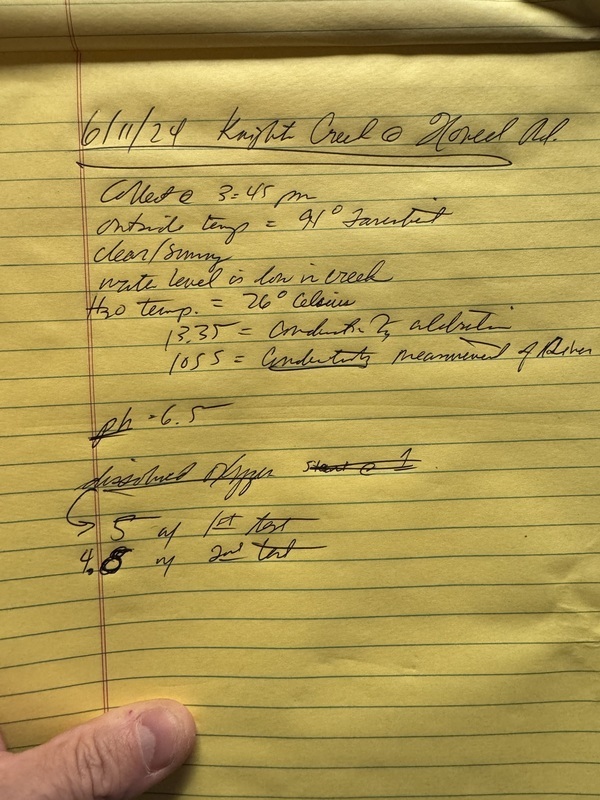 6/11/24 Knights Creek @ Rd.
Collect @ 3:45 pm
outside temp = 91° Farenheit
clear/sunny
water level is low in creek
H20 temp. = 26° Celsius
13.35 = Conductivity
1055 = Conductivity measurement of River
ph = 6.5
dissolved oxygen start @ 1
→ 5 w/ 1st test
4.8 w/ 2nd test